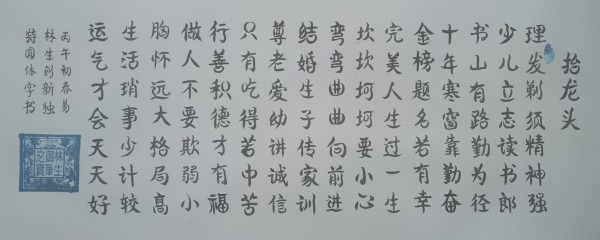 抬龙头
理发剃须精神强
少儿立志读书郎
书山有路勤为径
十年寒窗靠勤奋
金榜题名若有幸
完美人生过一生
坎坎坷坷要小心
弯弯曲曲向前进
结婚生子传家训
尊老爱幼讲诚信
只有吃得苦中苦
行善积德才有福
做人不要欺弱小
胸怀远大格局高
生活琐事少计较
运气才会天天好
丙午初春易
林生创新独
特圆体字书